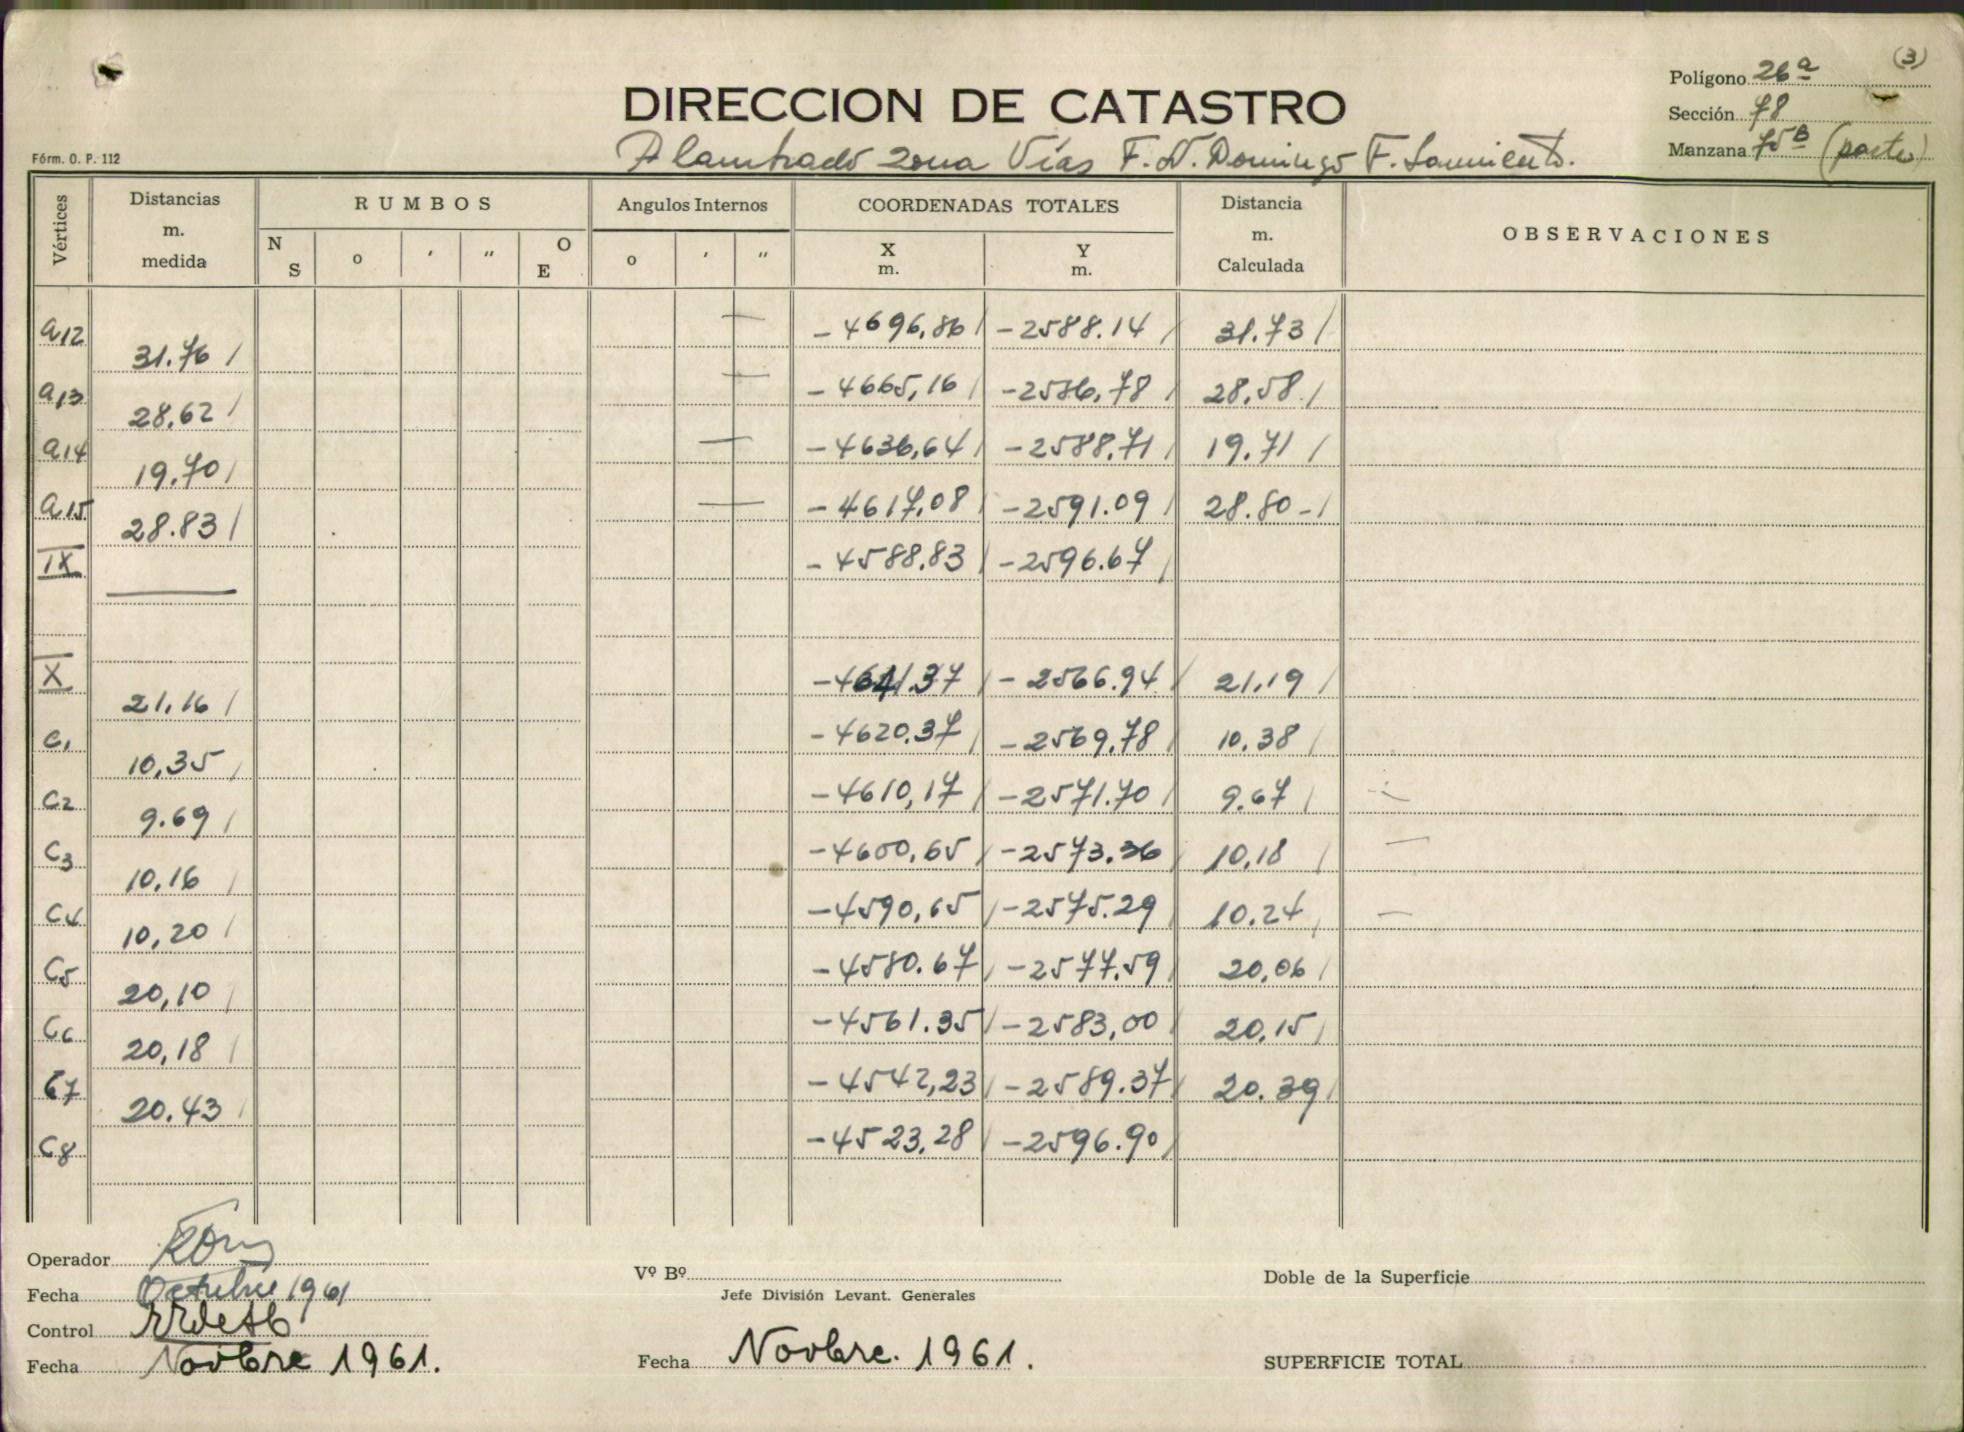 (3)
Polígono 26ª
DIRECCION DE CATASTRO
Sección 78
Fórm. O. P. 112
Alambrado zona Vías F. N. Domingo F. Sarmiento.
Manzana 75ᴮ (parte)
Vértices Distancias m. medida RUMBOS Angulos Internos COORDENADAS TOTALES Distancia m. Calculada OBSERVACIONES
N S o ′ ″ O E o ′ ″ X m. Y m.
a12 -4696,86 -2588.14 31.73
31.76
a13 -4665,16 -2586,78 28,58
28,62
a14 -4636,64 -2588,71 19.71
19.70
a15 -4617,08 -2591.09 28.80
28.83
IX -4588.83 -2596.67
X -4641.37 -2566.94 21,19
21,16
C1 -4620.37 -2569,78 10,38
10,35
C2 -4610,17 -2571.70 9.67
9.69
C3 -4600,65 -2573.36 10,18
10,16
C4 -4590,65 -2575.29 10.24
10,20
C5 -4580.67 -2577.59 20,06
20,10
C6 -4561.35 -2583,00 20,15
20,18
C7 -4542,23 -2589.37 20.39
20.43
C8 -4523,28 -2596.90
Operador
Fecha Octubre 1961
Control
Fecha Novbre 1961.
Vº Bº
Jefe División Levant. Generales
Fecha Novbre. 1961.
Doble de la Superficie
SUPERFICIE TOTAL